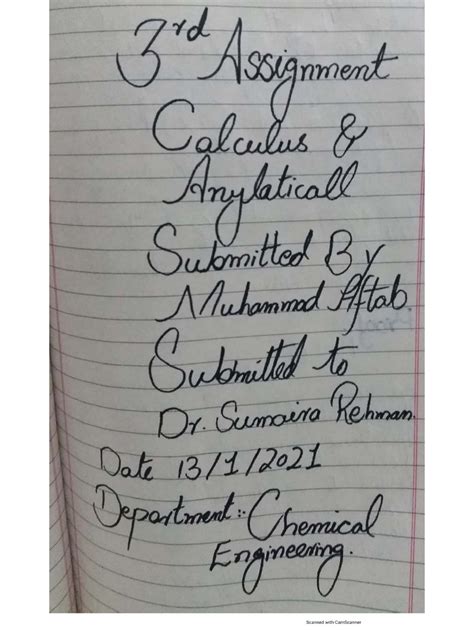 3rd Assignment
Calculus &
Anylaticall
Submitted By
Muhammad Aftab.
Submitted to
Dr. Sumaira Rehman.
Date 13/1/2021
Department:: Chemical
Engineering.
Scanned with CamScanner